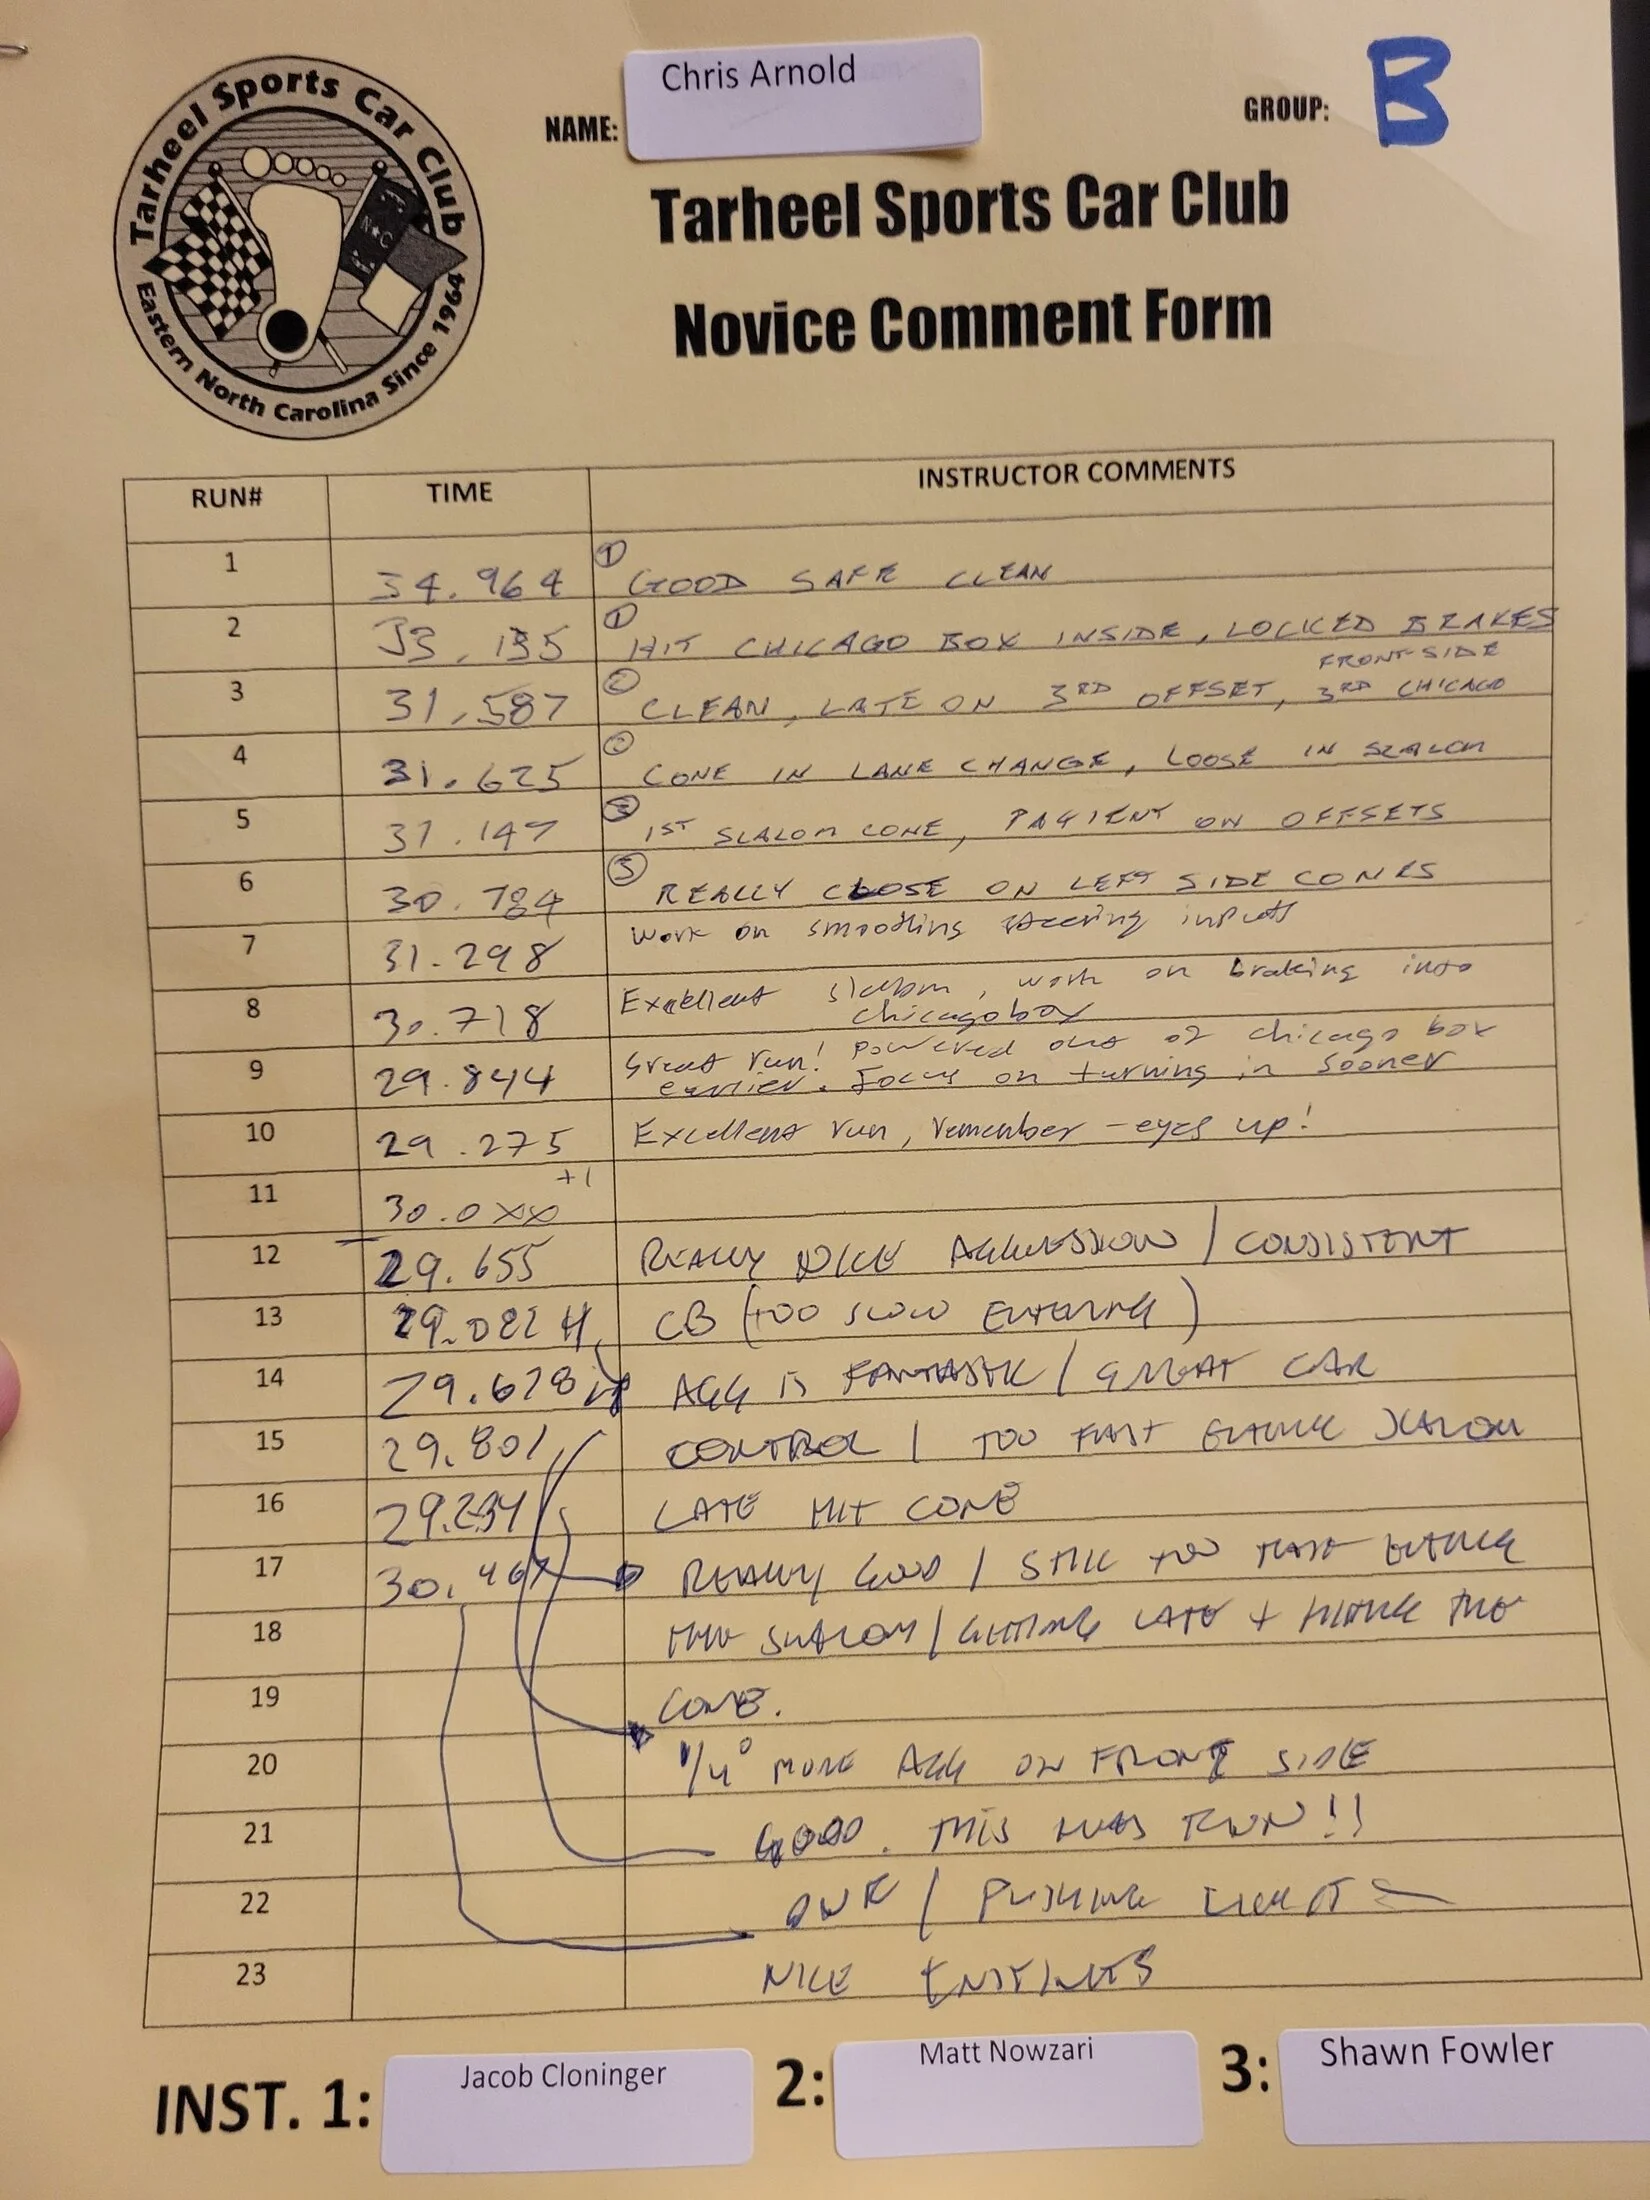 Tarheel Sports Car Club
Eastern North Carolina Since 1964
NAME: Chris Arnold
GROUP: B
Tarheel Sports Car Club
Novice Comment Form
RUN# TIME INSTRUCTOR COMMENTS
1 34.964 ① GOOD SAFE CLEAN
2 33.135 ① HIT CHICAGO BOX INSIDE, LOCKED BRAKES
FRONT-SIDE
3 31.587 ② CLEAN, LATE ON 3RD OFFSET, 3RD CHICAGO
4 31.625 ② CONE IN LANE CHANGE, LOOSE IN SLALOM
5 31.147 ③ 1ST SLALOM CONE, PATIENT ON OFFSETS
6 30.784 ③ REALLY CLOSE ON LEFT SIDE CONES
7 31.298 Work on smoothing steering inputs
8 30.718 Excellent slalom, work on braking into
chicago box
9 29.844 Great run! Powered out of chicago box
earlier. Focus on turning in sooner
10 29.275 Excellent run, remember - eyes up!
11 30.0xx +1
12 29.655 REALLY NICE AGGRESSION / CONSISTENT
13 29.082 CB (TOO SLOW ENTERING)
14 29.678 AGG IS FANTASTIC / GREAT CAR
15 29.801 CONTROL / TOO FAST ENTERING SLALOM
16 29.234 LATE HIT CONE
17 30.467 REALLY GOOD / STILL TOO FAST ENTERING
18 THE SLALOM / GETTING LATE + HITTING THE
19 CONE.
20 1/4° MORE AGG ON FRONT SIDE
21 GOOD. THIS WAS RUN!!
22 / PUSHING
23 NICE
INST. 1: Jacob Cloninger 2: Matt Nowzari 3: Shawn Fowler